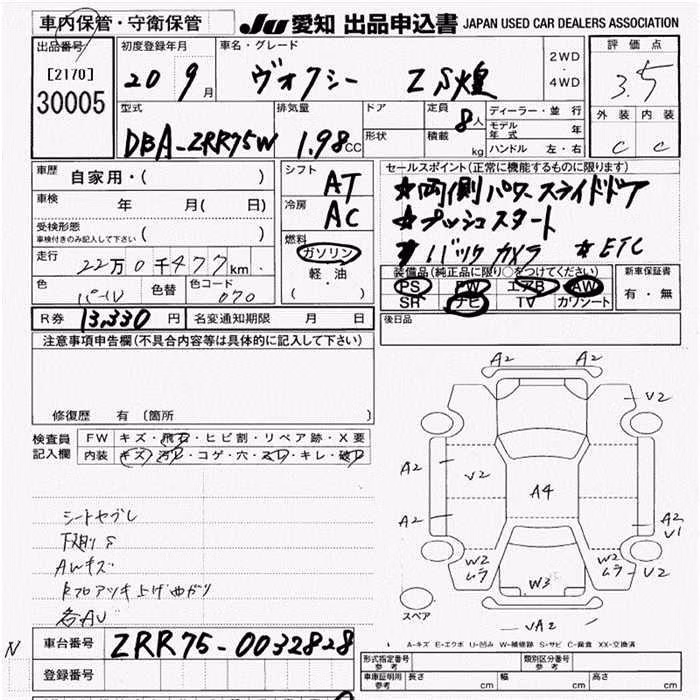 車内保管・守衛保管
JU 愛知 出品申込書 JAPAN USED CAR DEALERS ASSOCIATION
出品番号
[2170]
30005
初度登録年月
20 9月
車名・グレード
ヴォクシー ZS煌
2WD
・
4WD
評価点
3.5
外装 内装
C C
型式
DBA-ZRR75W
排気量
1.98cc
ドア
形状
定員 8人
積載 kg
ディーラー・並行
モデル年式 年
ハンドル 左・右
車歴 自家用・( )
車検 年 月( 日)
受検形態
車検付きのみ記入して下さい ( )
走行 22万0千477km
色 パール
色替
色コード 070
シフト AT
冷房 AC
燃料
ガソリン
軽・油
( )
セールスポイント(正常に機能するものに限ります)
★両側パワースライドドア
★プッシュスタート
★バックカメラ ★ETC
装備品(純正品に限り○をつけてください)
PS PW エアB AW
SR ナビ TV カワシート
新車保証書
有・無
R券 13,330円
名変通知期限 月 日
後日品
注意事項申告欄(不具合内容等は具体的に記入して下さい)
修復歴 有 〔箇所
検査員記入欄
FW キズ・飛石・ヒビ割・リペア跡・X要
内装 キズ・汚レ・コゲ・穴・スレ・キレ・破レ
シートヤブレ
下廻りS
AWキズ
各AU
A2 A2
V2
A2 V2
A4
A2 A2
V1
W2 ムラ
W2 ムラ V2
W3
スペア
VA2
A-キズ E-エクボ U-凹み W-補修跡 S-サビ C-腐食 XX-交換済
N
車台番号 ZRR75-0032828
登録番号
形式指定番号 参考
類別区分番号 参考
車庫証明用 参考 長さ cm 幅 cm 高さ cm